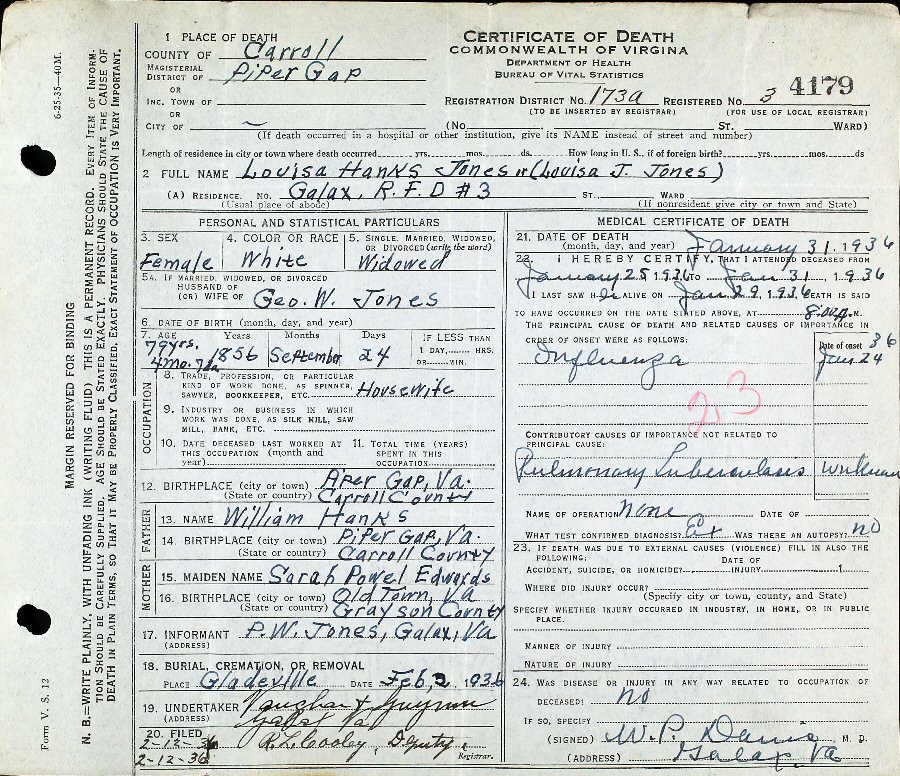 CERTIFICATE OF DEATH
COMMONWEALTH OF VIRGINIA
DEPARTMENT OF HEALTH
BUREAU OF VITAL STATISTICS
4179
1 PLACE OF DEATH
COUNTY OF Carroll
MAGISTERIAL DISTRICT OF Piper Gap
OR
INC. TOWN OF
OR
CITY OF
REGISTRATION DISTRICT NO. 173a REGISTERED NO. 3
(TO BE INSERTED BY REGISTRAR) (FOR USE OF LOCAL REGISTRAR)
(No. ST. WARD)
(If death occurred in a hospital or other institution, give its NAME instead of street and number)
Length of residence in city or town where death occurred yrs. mos. ds. How long in U. S., if of foreign birth? yrs. mos. ds
2 FULL NAME Louisa Hanks Jones or (Louisa J. Jones)
(A) RESIDENCE. NO. Galax, R.F.D #3 ST., WARD
(Usual place of abode) (If nonresident give city or town and State)
PERSONAL AND STATISTICAL PARTICULARS
3. SEX
Female
4. COLOR OR RACE
White
5. SINGLE, MARRIED, WIDOWED, OR DIVORCED (write the word)
Widowed
5A. IF MARRIED, WIDOWED, OR DIVORCED
HUSBAND OF
(OR) WIFE OF Geo. W. Jones
6. DATE OF BIRTH (month, day, and year)
7. AGE Years Months Days
79 yrs. 4 mo. 7 da 1856 September 24
IF LESS THAN
1 DAY, HRS.
OR MIN.
OCCUPATION
8. TRADE, PROFESSION, OR PARTICULAR
KIND OF WORK DONE, AS SPINNER,
SAWYER, BOOKKEEPER, ETC. Housewife
9. INDUSTRY OR BUSINESS IN WHICH
WORK WAS DONE, AS SILK MILL, SAW
MILL, BANK, ETC.
10. DATE DECEASED LAST WORKED AT
THIS OCCUPATION (month and
year)
11. TOTAL TIME (YEARS)
SPENT IN THIS
OCCUPATION
12. BIRTHPLACE (city or town) Piper Gap, Va.
(State or country) Carroll County
FATHER
13. NAME William Hanks
14. BIRTHPLACE (city or town) Piper Gap, Va.
(State or country) Carroll County
MOTHER
15. MAIDEN NAME Sarah Powel Edwards
16. BIRTHPLACE (city or town) Old Town, Va
(State or country) Grayson County
17. INFORMANT P.W. Jones, Galax, Va
(ADDRESS)
18. BURIAL, CREMATION, OR REMOVAL
PLACE Gladeville DATE Feb, 2 1936
19. UNDERTAKER Vaughan &
(ADDRESS) Va
20. FILED
2-12-36 R. L. Cooley, Deputy,
2-12-36 Registrar.
MEDICAL CERTIFICATE OF DEATH
21. DATE OF DEATH
(month, day, and year) January 31. 1936
22. I HEREBY CERTIFY, THAT I ATTENDED DECEASED FROM
January 25 1936 TO Jan 31, 1936
I LAST SAW ALIVE ON Jan 29, 1936 DEATH IS SAID
TO HAVE OCCURRED ON THE DATE STATED ABOVE, AT M.
THE PRINCIPAL CAUSE OF DEATH AND RELATED CAUSES OF IMPORTANCE IN
ORDER OF ONSET WERE AS FOLLOWS:
Influenza
Date of onset 36
Jan 24
CONTRIBUTORY CAUSES OF IMPORTANCE NOT RELATED TO
PRINCIPAL CAUSE:
Pulmonary Tuberculosis
NAME OF OPERATION none DATE OF
WHAT TEST CONFIRMED DIAGNOSIS? Ex WAS THERE AN AUTOPSY? no
23. IF DEATH WAS DUE TO EXTERNAL CAUSES (VIOLENCE) FILL IN ALSO THE
FOLLOWING:
ACCIDENT, SUICIDE, OR HOMICIDE? DATE OF INJURY 1
WHERE DID INJURY OCCUR?
(Specify city or town, county, and State)
SPECIFY WHETHER INJURY OCCURRED IN INDUSTRY, IN HOME, OR IN PUBLIC
PLACE.
MANNER OF INJURY
NATURE OF INJURY
24. WAS DISEASE OR INJURY IN ANY WAY RELATED TO OCCUPATION OF
DECEASED? No
IF SO, SPECIFY
(SIGNED) W. P. Davis M. D.
(ADDRESS) Galax Va
6-25-35—40M.
MARGIN RESERVED FOR BINDING
N. B.—WRITE PLAINLY, WITH UNFADING INK (WRITING FLUID) THIS IS A PERMANENT RECORD. EVERY ITEM OF INFORMATION SHOULD BE CAREFULLY SUPPLIED. AGE SHOULD BE STATED EXACTLY. PHYSICIANS SHOULD STATE THE CAUSE OF DEATH IN PLAIN TERMS, SO THAT IT MAY BE PROPERLY CLASSIFIED. EXACT STATEMENT OF OCCUPATION IS VERY IMPORTANT.
Form V. S. 12